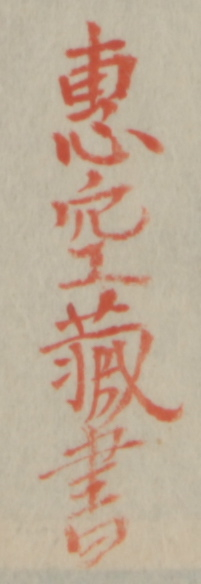 惠空藏書